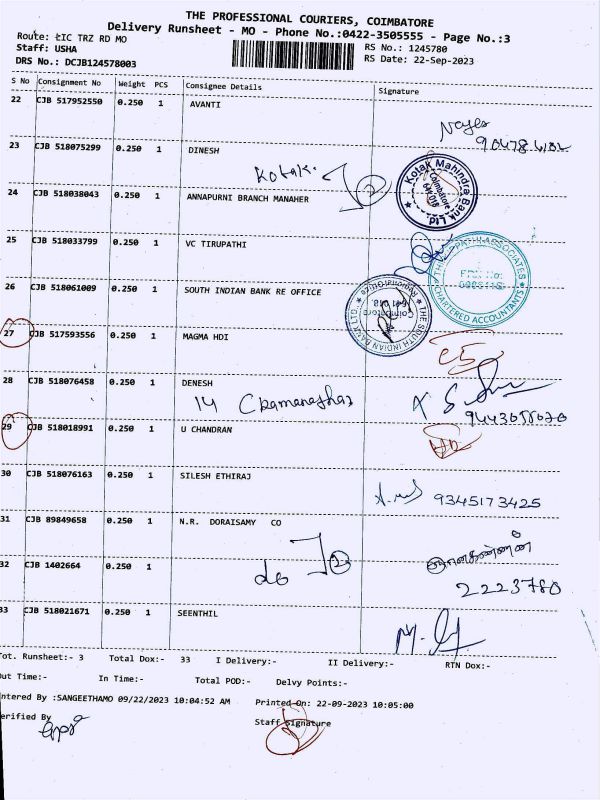 THE PROFESSIONAL COURIERS, COIMBATORE
Delivery Runsheet - MO - Phone No.:0422-3505555 - Page No.:3
Route: LIC TRZ RD MO
RS No.: 1245780
Staff: USHA
RS Date: 22-Sep-2023
DRS No.: DCJB124578003
S No Consignment No Weight PCS Consignee Details Signature
22 CJB 517952550 0.250 1 AVANTI
23 CJB 518075299 0.250 1 DINESH
Kotak.
Kotak Mahindra Bank Ltd
Coimbatore
641 018
24 CJB 518038043 0.250 1 ANNAPURNI BRANCH MANAHER
25 CJB 518033799 0.250 1 VC TIRUPATHI
ASSOCIATES
CHARTERED ACCOUNTANTS
26 CJB 518061009 0.250 1 SOUTH INDIAN BANK RE OFFICE
THE SOUTH INDIAN BANK LTD.
Coimbatore
641 018
27 CJB 517593556 0.250 1 MAGMA HDI
28 CJB 518076458 0.250 1 DENESH
14
29 CJB 518018991 0.250 1 U CHANDRAN
30 CJB 518076163 0.250 1 SILESH ETHIRAJ
9345173425
31 CJB 89849658 0.250 1 N.R. DORAISAMY CO
32 CJB 1402664 0.250 1
do
2223780
33 CJB 518021671 0.250 1 SEENTHIL
Tot. Runsheet:- 3 Total Dox:- 33 I Delivery:- II Delivery:- RTN Dox:-
Out Time:- In Time:- Total POD:- Delvy Points:-
Entered By :SANGEETHAMO 09/22/2023 10:04:52 AM Printed On: 22-09-2023 10:05:00
Verified By
Staff Signature